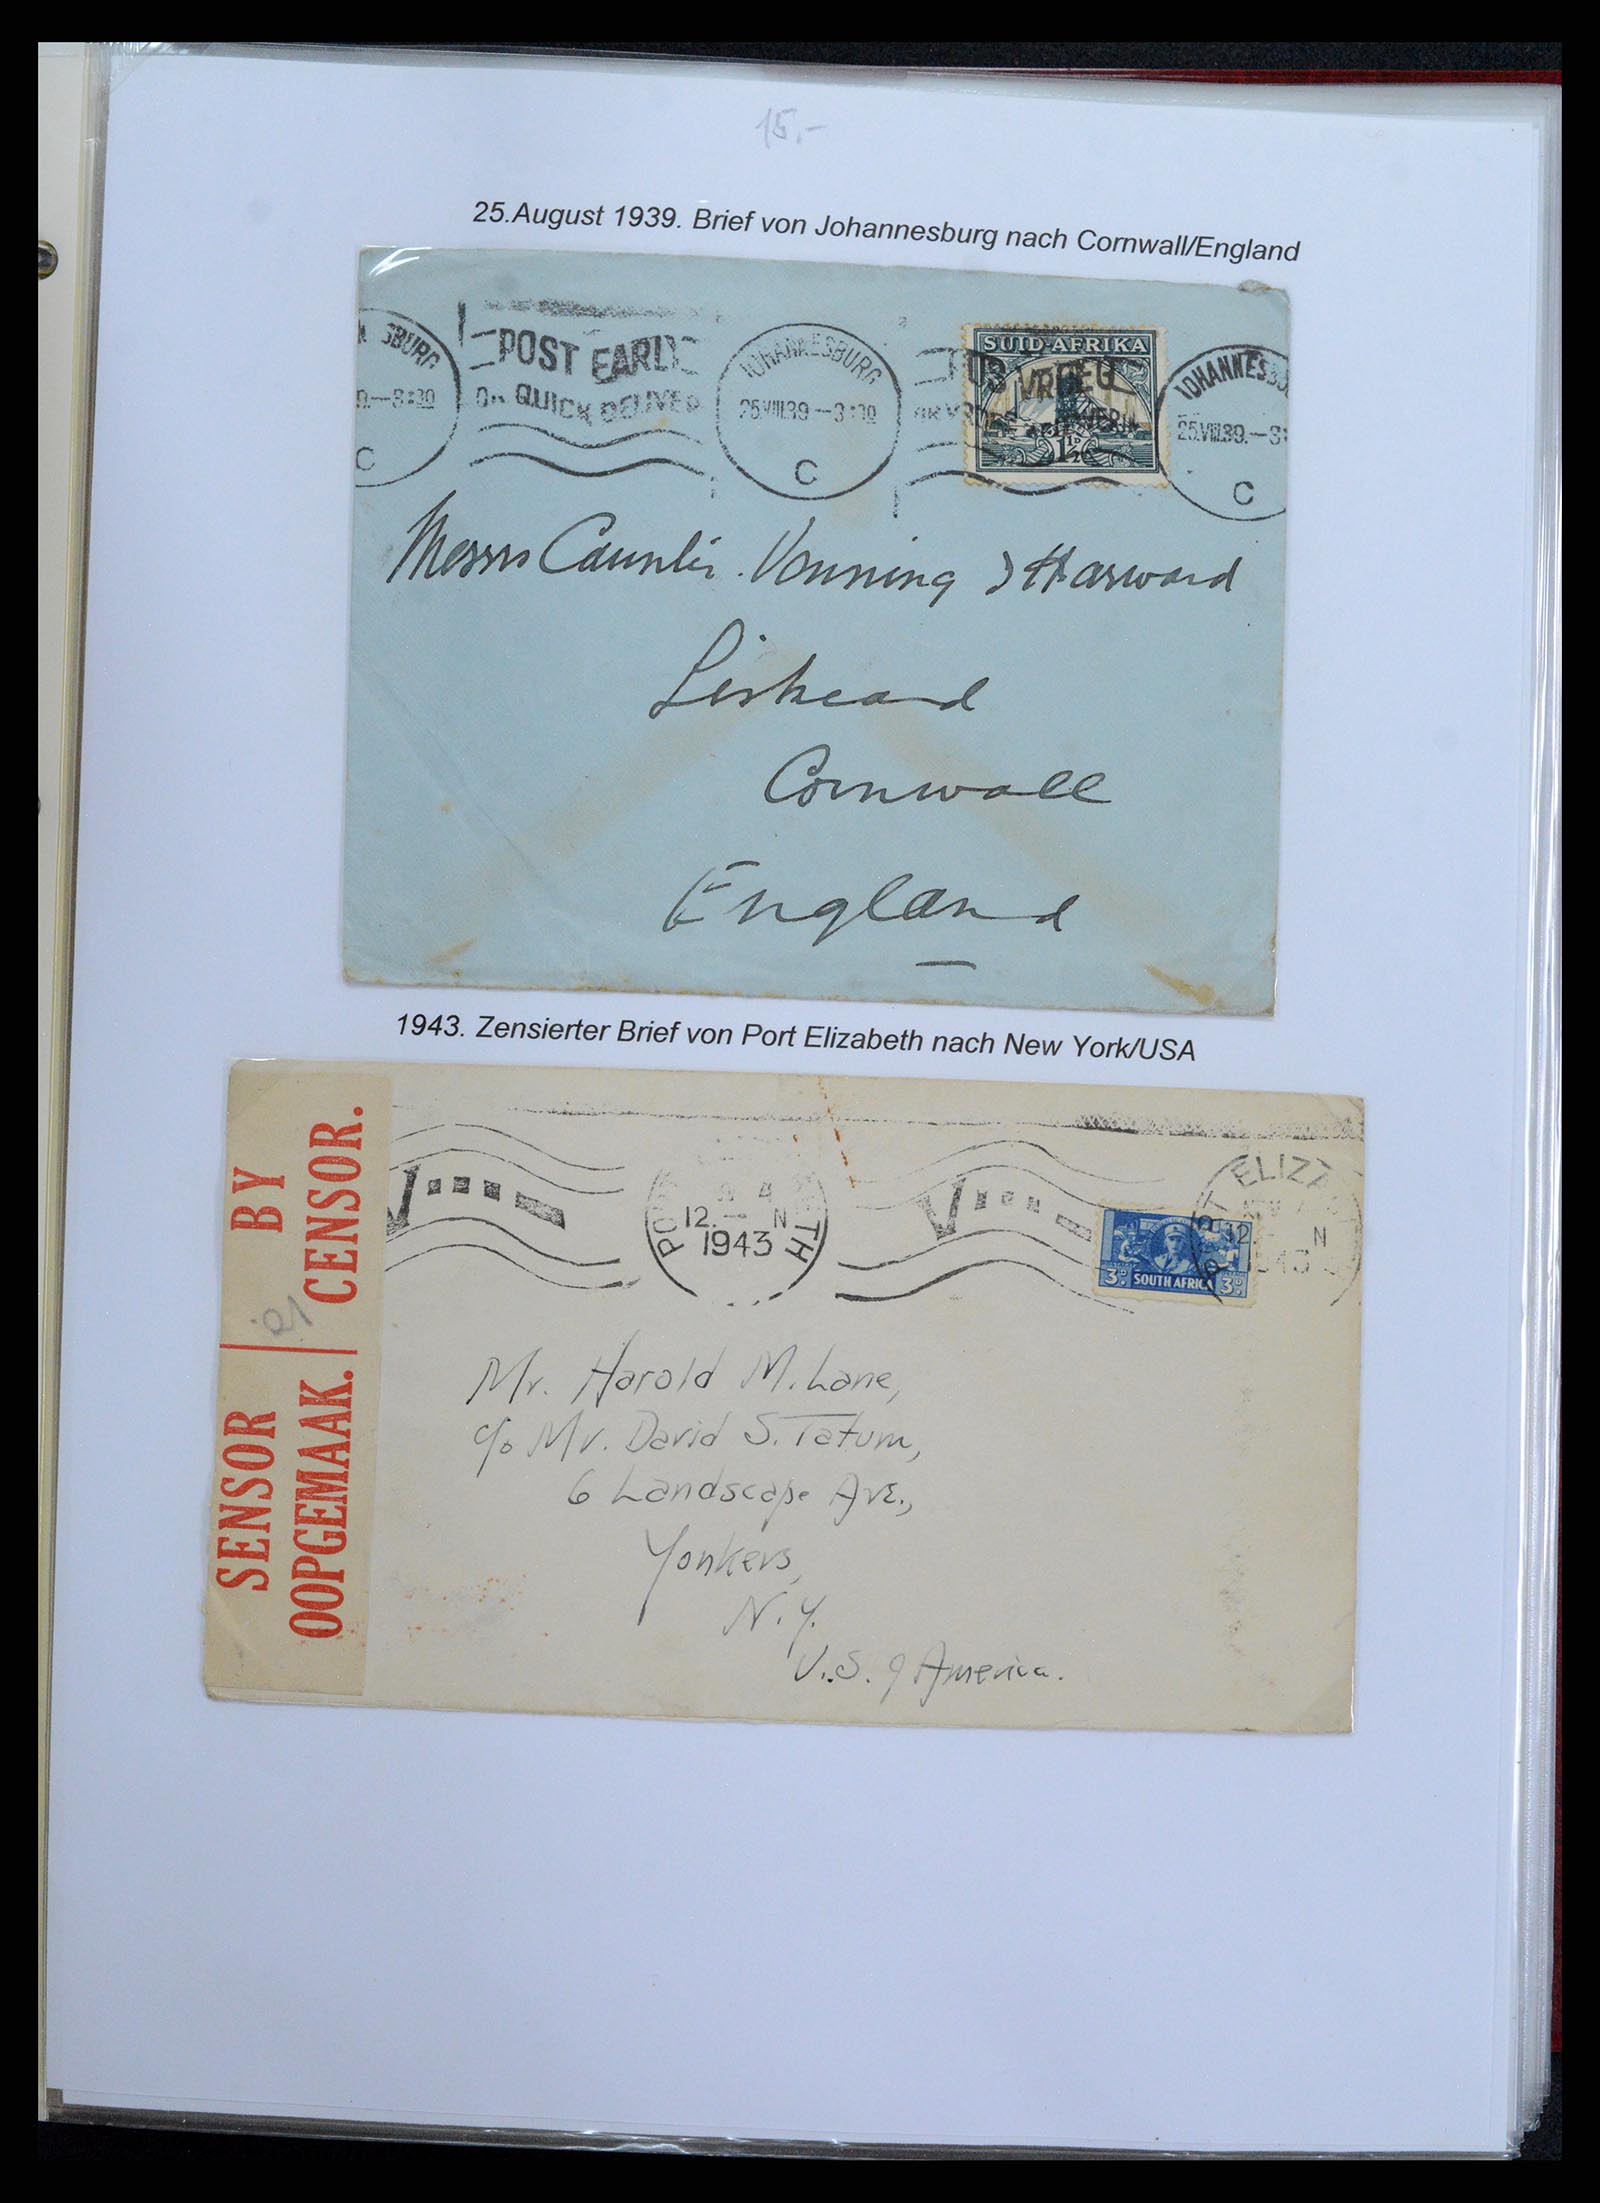 15.-
25.August 1939. Brief von Johannesburg nach Cornwall/England
SBURG
POST EARLY
QUICK DELIVER
JOHANNESBURG
25.VIII.39.–3:30
C
SUID-AFRIKA
1½D
JOHANNESBU
25.VIII.39.–3
C
C
Messrs Caunter. Venning & Harward
Liskeard
Cornwall
England
1943. Zensierter Brief von Port Elizabeth nach New York/USA
BY
CENSOR.
SENSOR
OOPGEMAAK.
V
12. – N
1943
V
ELIZA
12. N
3D SOUTH AFRICA 3D
Mr. Harold M. Lane,
c/o Mr. David S. Tatum,
6 Landscape Ave.,
Yonkers,
N.Y.
U.S. of America.